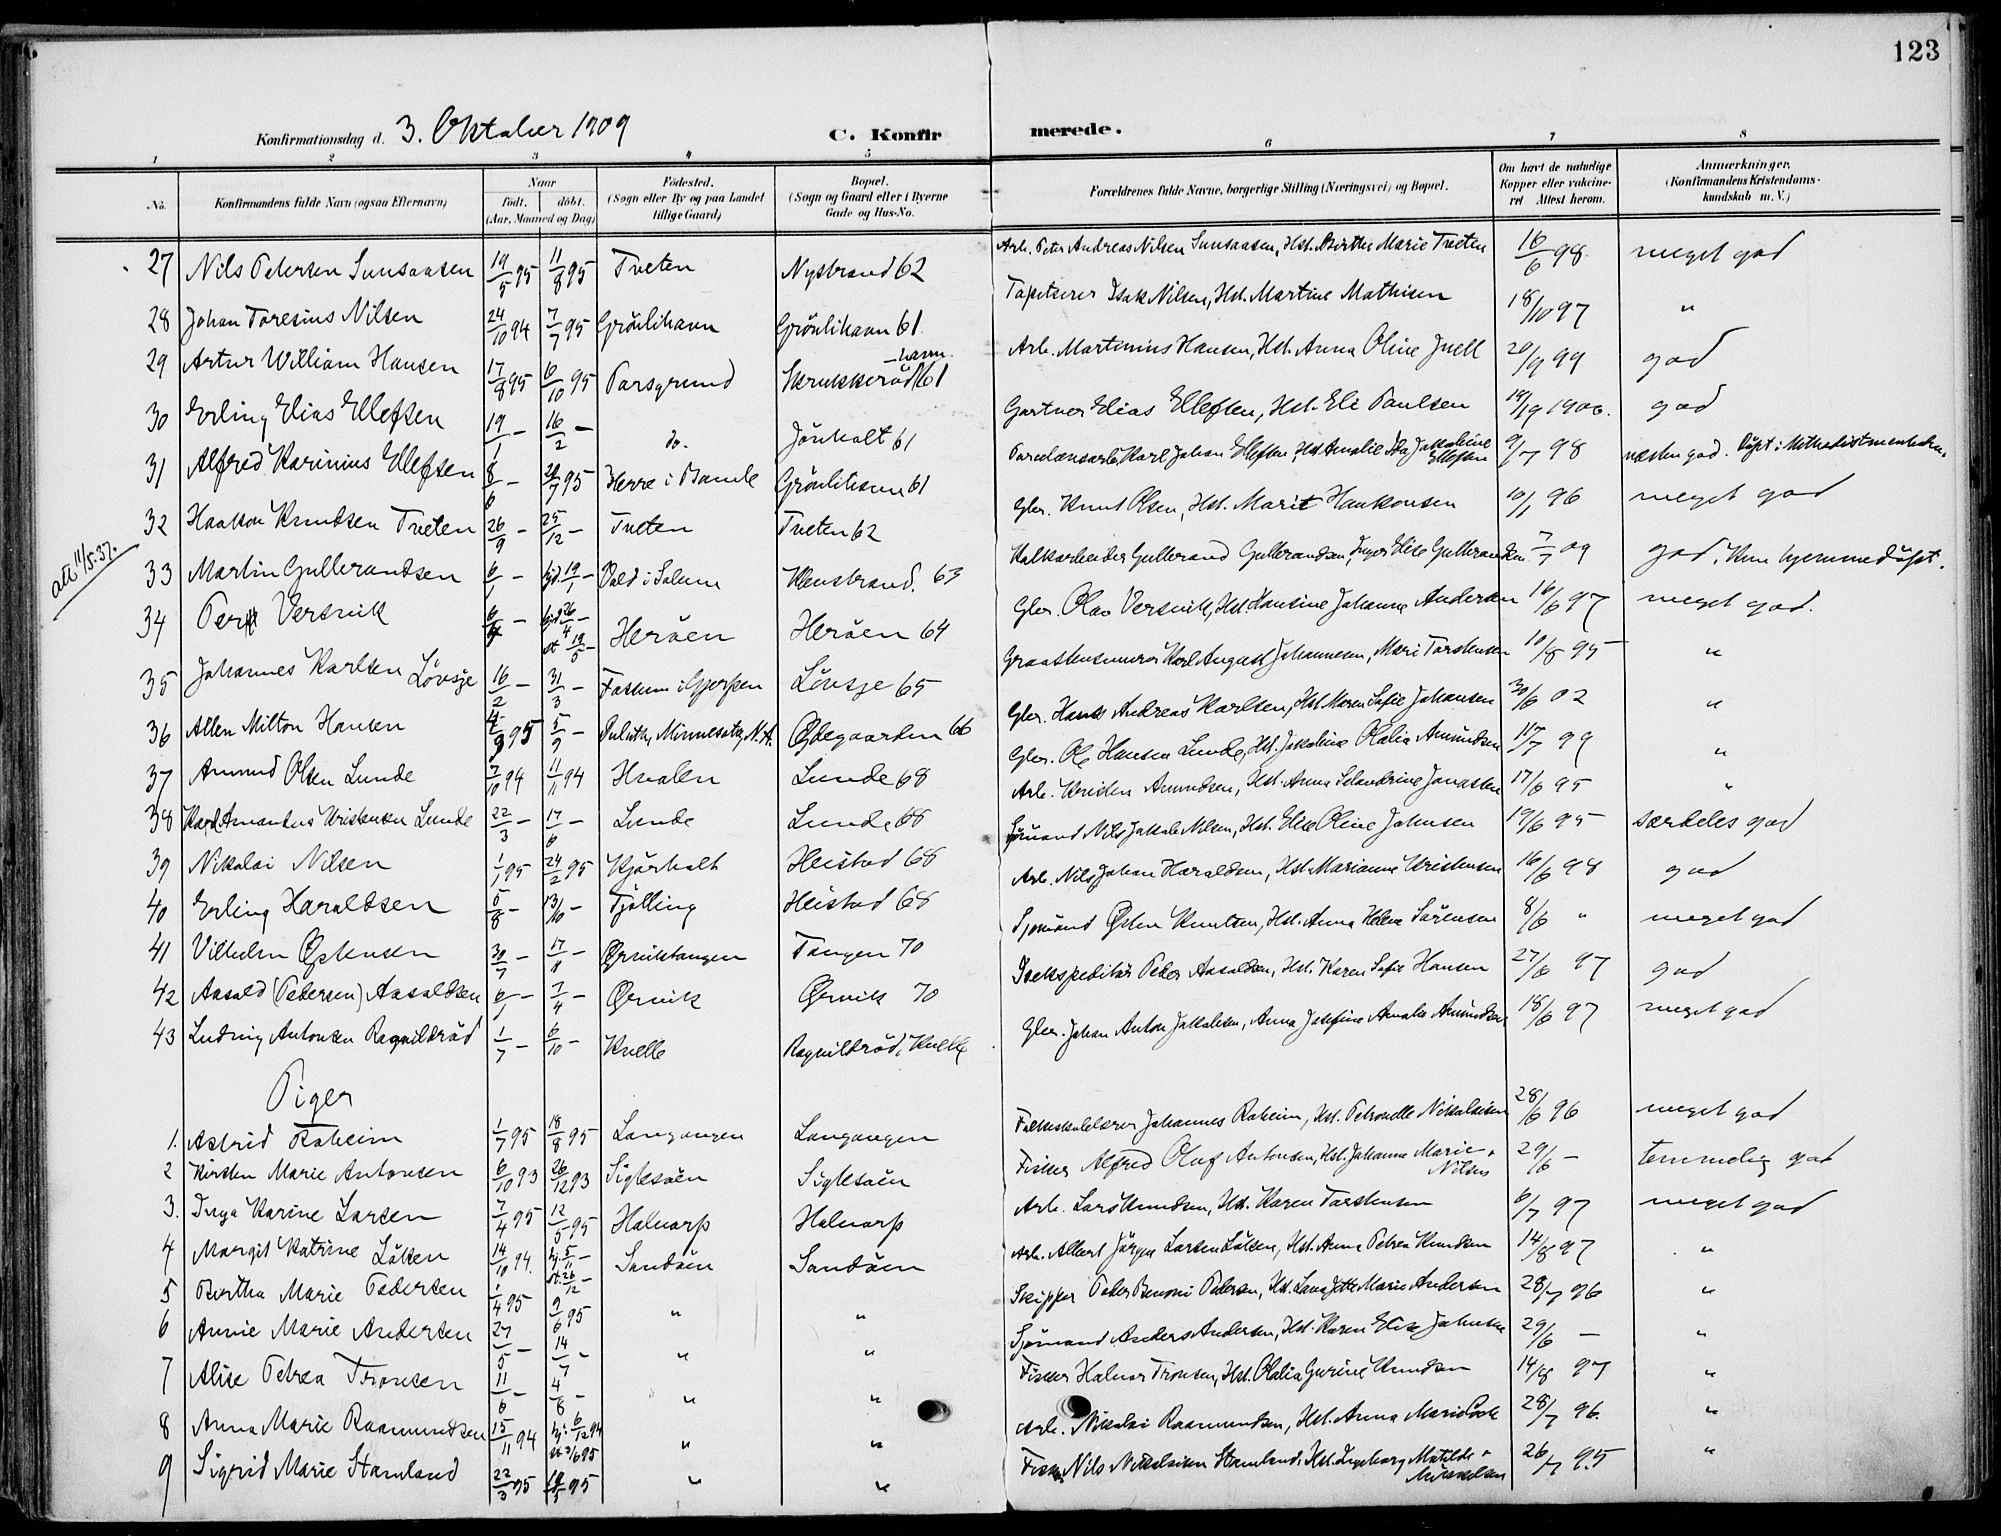 123
Konfirmationsdag d. 3. Oktober 1909
C. Konfirmerede.
1 2 3 4 5 6 7 8
No. Konfirmandens fulde Navn (ogsaa Efternavn) Naar født. døbt. (Aar, Maaned og Dag) Fødested. (Sogn eller By og paa Landet tillige Gaard) Bopæl. (Sogn og Gaard eller i Byerne Gade og Hus-No. Forældrenes fulde Navne, borgerlige Stilling (Næringsvei) og Bopæl. Om havt de naturlige Kopper eller vakcineret Attest herom. Anmærkninger. (Konfirmandens Kristendomskundskab m. V.)
27 Nils Petersen Sunsaasen 19/5 95 11/8 95 Tveten Nystrand 62 Arb. Peter Andreas Nilsen Sunsaasen, Hst. Berthe Marie Tveten 16/6 98 meget god
28 Johan Toresius Nilsen 24/10 94 7/7 95 Grönlihavn Grönlihavn 61 Tapetserer Isak Nilsen, Hst. Martine Mathisen 18/10 97 "
29 Artur William Hansen 17/8 95 6/10 95 Porsgrund Skrukkerød 61 Arb. Martinius Hansen, Hst. Anna Oline Juell 20/9 99 god
30 Erling Elias Ellefsen 19/1 - 16/2 - do. Jönholt 61 Gartner Elias Ellefsen, Hst. Eli Paulsen 19/9 1900. god
31 Alfred Karinius Ellefsen 8/6 - 28/7 95 Herre i Bamle Grönlihavn 61 Porcelænsarb. Karl Johan Ellefsen, Hst. Amalie Ida Jakobine Ellefsen 9/7 98 næsten god. Døpt i Methodistmenigh.
32 Haakon Knudsen Tveten 26/9 - 25/12 - Tveten Tveten 62 Gbr. Knut Olsen, Hst. Marit Haakonsen 10/1 96 meget god
att 11/5.37.
33 Martin Gulbrandsen 6/1 - hjd. 19/1 - Vold i Solum Klenstrand. 63 Kalkarbeider Gulbrand Gulbrandsen, Inger Elise Gulbrandsen 7/7 09 god. Kun hjemmedøpt.
34 Per Versvik 6/4 - hjd 26/4 - st 19/5 - Herøen Herøen 64 Gbr. Olav Versvik, Hst. Hansine Johanne Andersen 16/6 97 meget god.
35 Johannes Karlsen Løvsje 16/2 - 31/3 - Fossum i Gjerpen Løvsje 65 Graastensmurer Karl August Johannesen, Mari Torstensen 10/8 95 "
36 Allen Milton Hansen 4/8 95 5/9 - Duluth, Minnesota, N.A. Ødegaarden 66 Gbr. Hans Andreas Karlsen, Hst. Maren Sofie Johansen 30/6 02 "
37 Amund Olsen Lunde 7/10 94 11/11 94 Hvalen Lunde 68 Gbr. Ole Hansen Lunde, Hst. Jakobine Olalia Amundsen 17/7 99 "
38 Karl Amandus Kristensen Lunde 22/3 - 17/6 - Lunde Lunde 68 Arb. Kristen Amundsen, Hst. Anna Selandrine Jonassen 17/6 95 "
39 Nikolai Nilsen 1/1 95 24/2 95 Kjörholt Heistad 68 Sjömand Nils Jakob Nilsen, Hst. Else Oline Johnsen 19/6 95 særdeles god
40 Erling Haraldsen 5/8 - 13/10 - Tjölling Heistad 68 Arb. Nils Johan Haraldsen, Hst. Marianne Kristensen 16/6 98 god
41 Vilhelm Østensen 30/7 - 17/11 - Ørvikstangen Tangen 70 Sjömand Østen Knutsen, Hst. Anna Helene Sörensen 8/6 " meget god
42 Aasold (Pedersen) Aasoldsen 6/1 - 7/4 - Ørvik Ørvik 70 Isekspeditör Peder Aasoldsen, Hst. Karen Sofie Hansen 27/6 97 god
43 Ludvig Antonsen Ragnildröd 1/7 - 6/10 - Kvelle Ragnildröd, Kvelle Gbr. Johan Anton Jakobsen, Anna Josefine Amalie Amundsen 18/6 97 meget god
Piger
1. Astrid Raheim 1/7 95 18/8 95 Langangen Langangen Folkeskolelærer Johannes Raheim, Hst. Petronelle Nikolaisen 28/6 96 meget god
2 Kirsten Marie Antonsen 6/10 93 26/12 93 Siglesöen Siglesöen Fisker Alfred Oluf Antonsen, Hst. Johanne Marie Nilsen 29/6 - temmelig god
3. Inga Karine Larsen 7/4 95 12/5 95 Halvarp Halvarp Arb. Lars Knudsen, Hst. Karen Torstensen 6/7 97 meget god
4 Margit Katrine Löken 14/10 94. hj. 5/11 - st. 26/12 - Sandöen Sandöen Arb. Albert Jörgen Larsen Löken, Hst. Anna Petrea Knudsen 14/8 97 "
5 Bertha Marie Pedersen 1/4 95 9/6 95 " " Skipper Peder Benoni Pedersen, Hst. Lava Jette Marie Andersen 28/7 96 "
6 Annie Marie Andersen 27/5 - 14/7 - " " Sjömand Anders Andersen, Hst. Karen Elise Johnsen 29/6 - "
7 Alise Petrea Tronsen 11/6 - 4/8 - " " Fisker Halvor Tronsen, Hst. Olalia Gurine Knudsen 14/8 97 "
8 Anna Marie Raamundsen 15/11 94 hj. 6/12 94 st 3/6 95 " " Arb. Nikolai Raamundsen, Hst. Anna Marie Cook 28/7 96. "
9 Sigrid Marie Stamland 22/3 95 19/5 95 " " Fisker Nils Nikolaisen Stamland, Hst. Ingeborg Matilde Mikkelsen 26/7 95 "